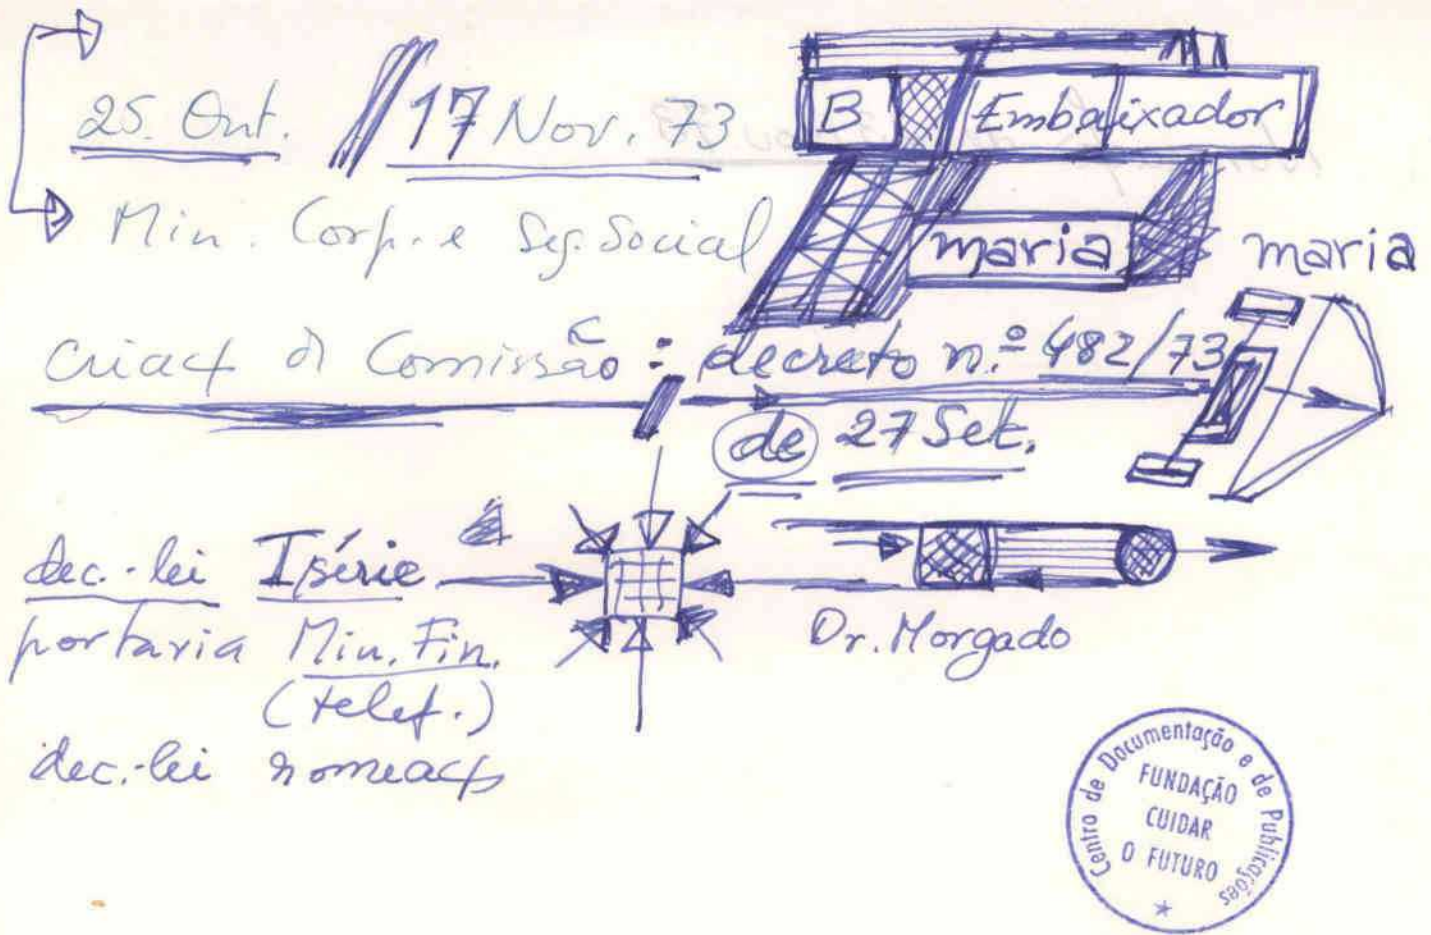 25. Out. // 17 Nov. 73
B Embaixador
Min. Corp. e Seg. Social
maria
maria
Criaç de Comissão : decreto n.º 482/73
de 27 Set.
dec.-lei I série
portaria Min. Fin.
(telef.)
dec.-lei nomeaç
Dr. Morgado
Centro de Documentação e de Publicações
FUNDAÇÃO
CUIDAR
O FUTURO